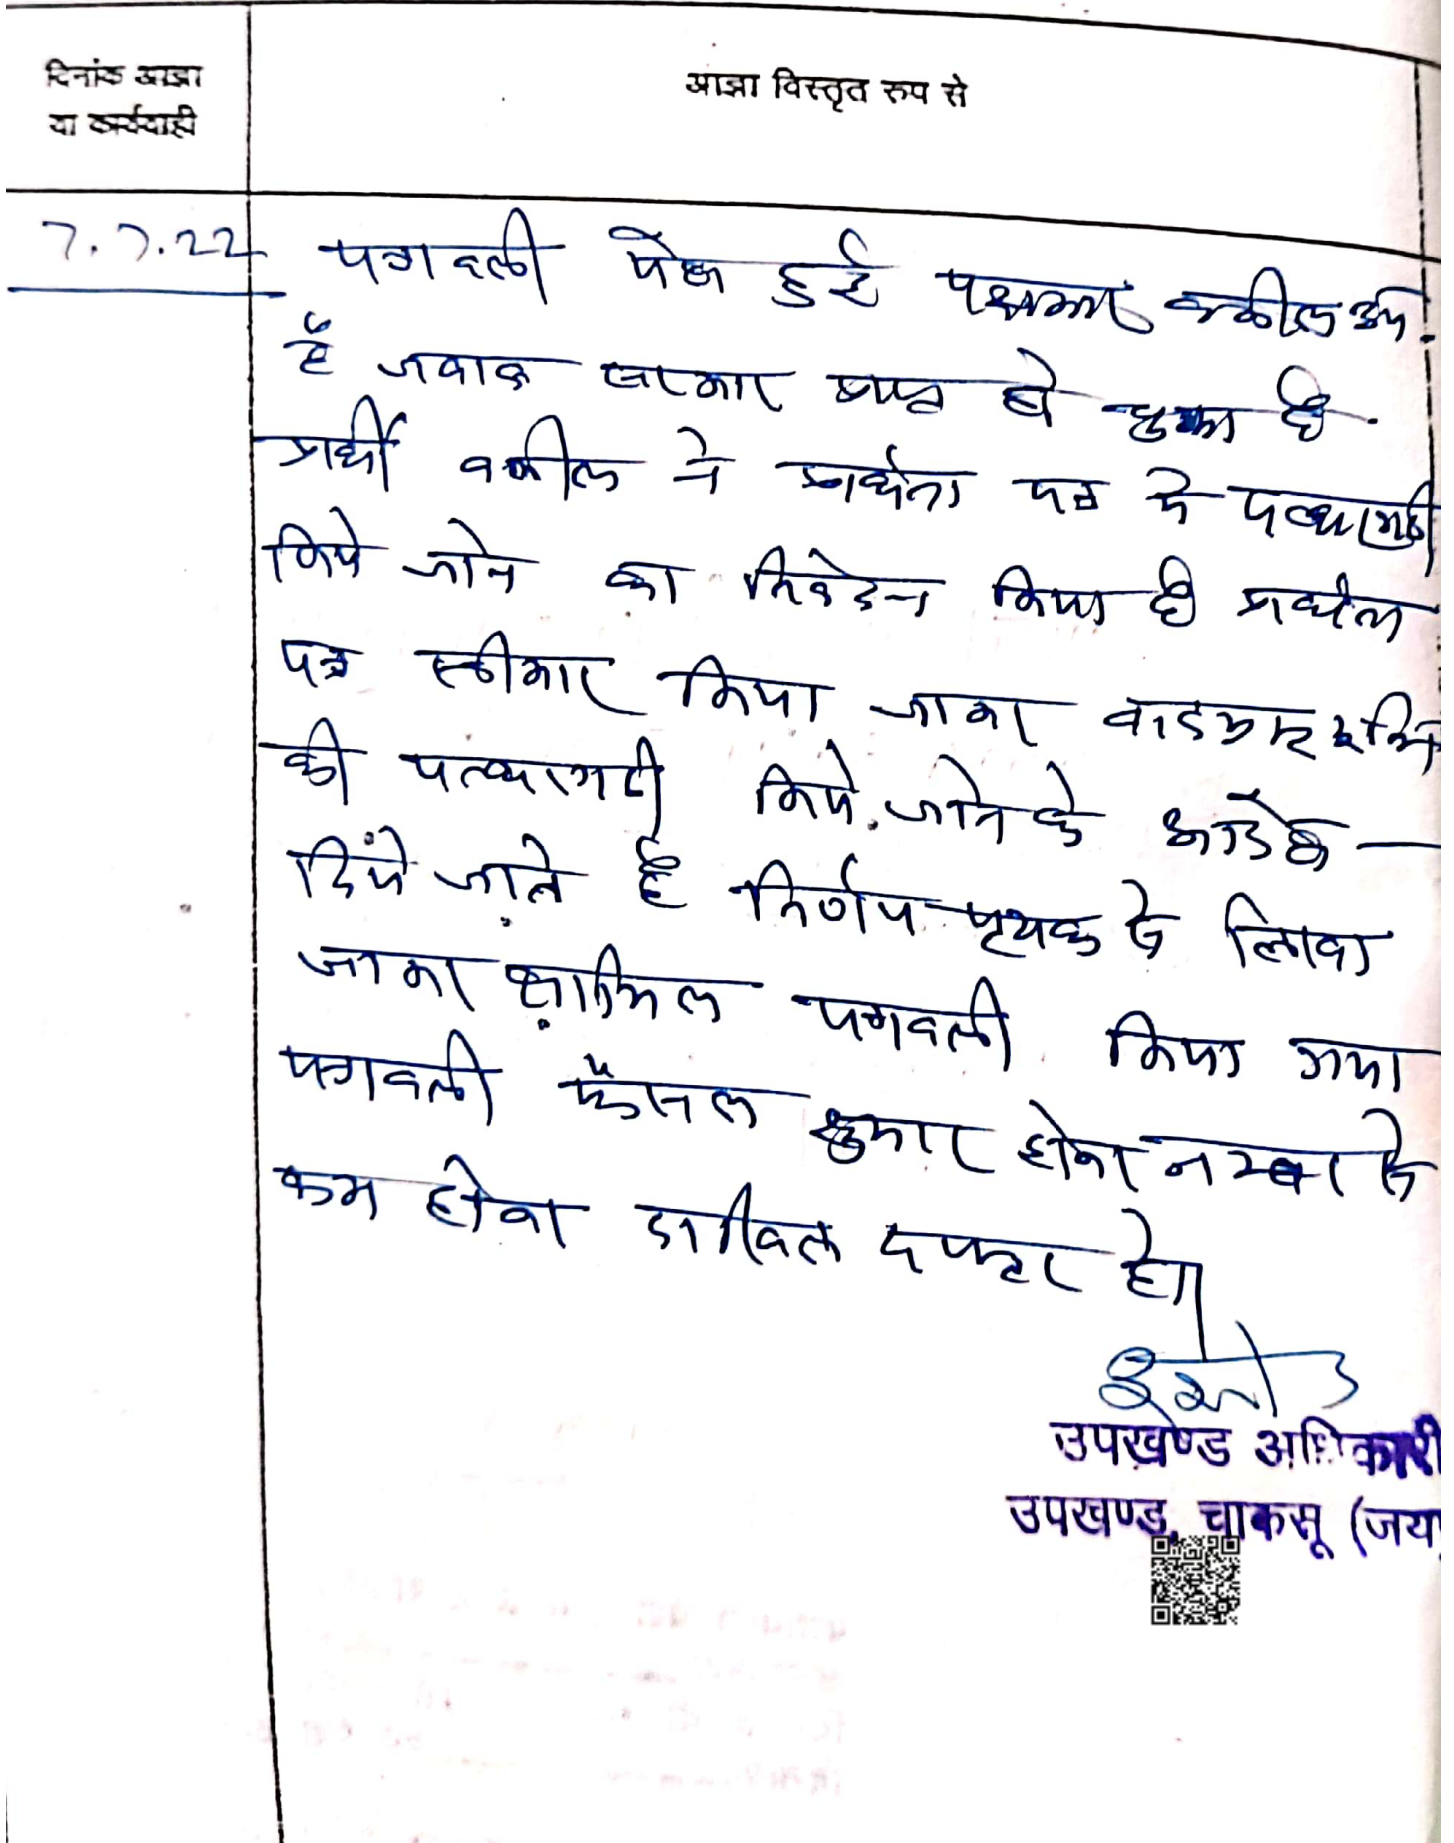 दिनांक आज्ञा
या कार्यवाही
आज्ञा विस्तृत रूप से
7.7.22 पत्रावली पेश हुई पक्षकार वकील उप.
है जवाब सरकार प्राप्त हो चुका है.
प्रार्थी वकील ने प्रार्थना पत्र में पत्थरगढ़ी
किये जाने का निवेदन किया है प्रार्थना
पत्र स्वीकार किया जाकर वादग्रस्त भूमि
की पत्थरगढी किये जाने के आदेश
दिये जाते है निर्णय पृथक से लिखा
जाकर शामिल पत्रावली किया गया
पत्रावली फैसल शुमार होकर नम्बर से
कम होकर दाखिल दफ्तर हो।
उपखण्ड अधिकारी
उपखण्ड, चाकसू (जय